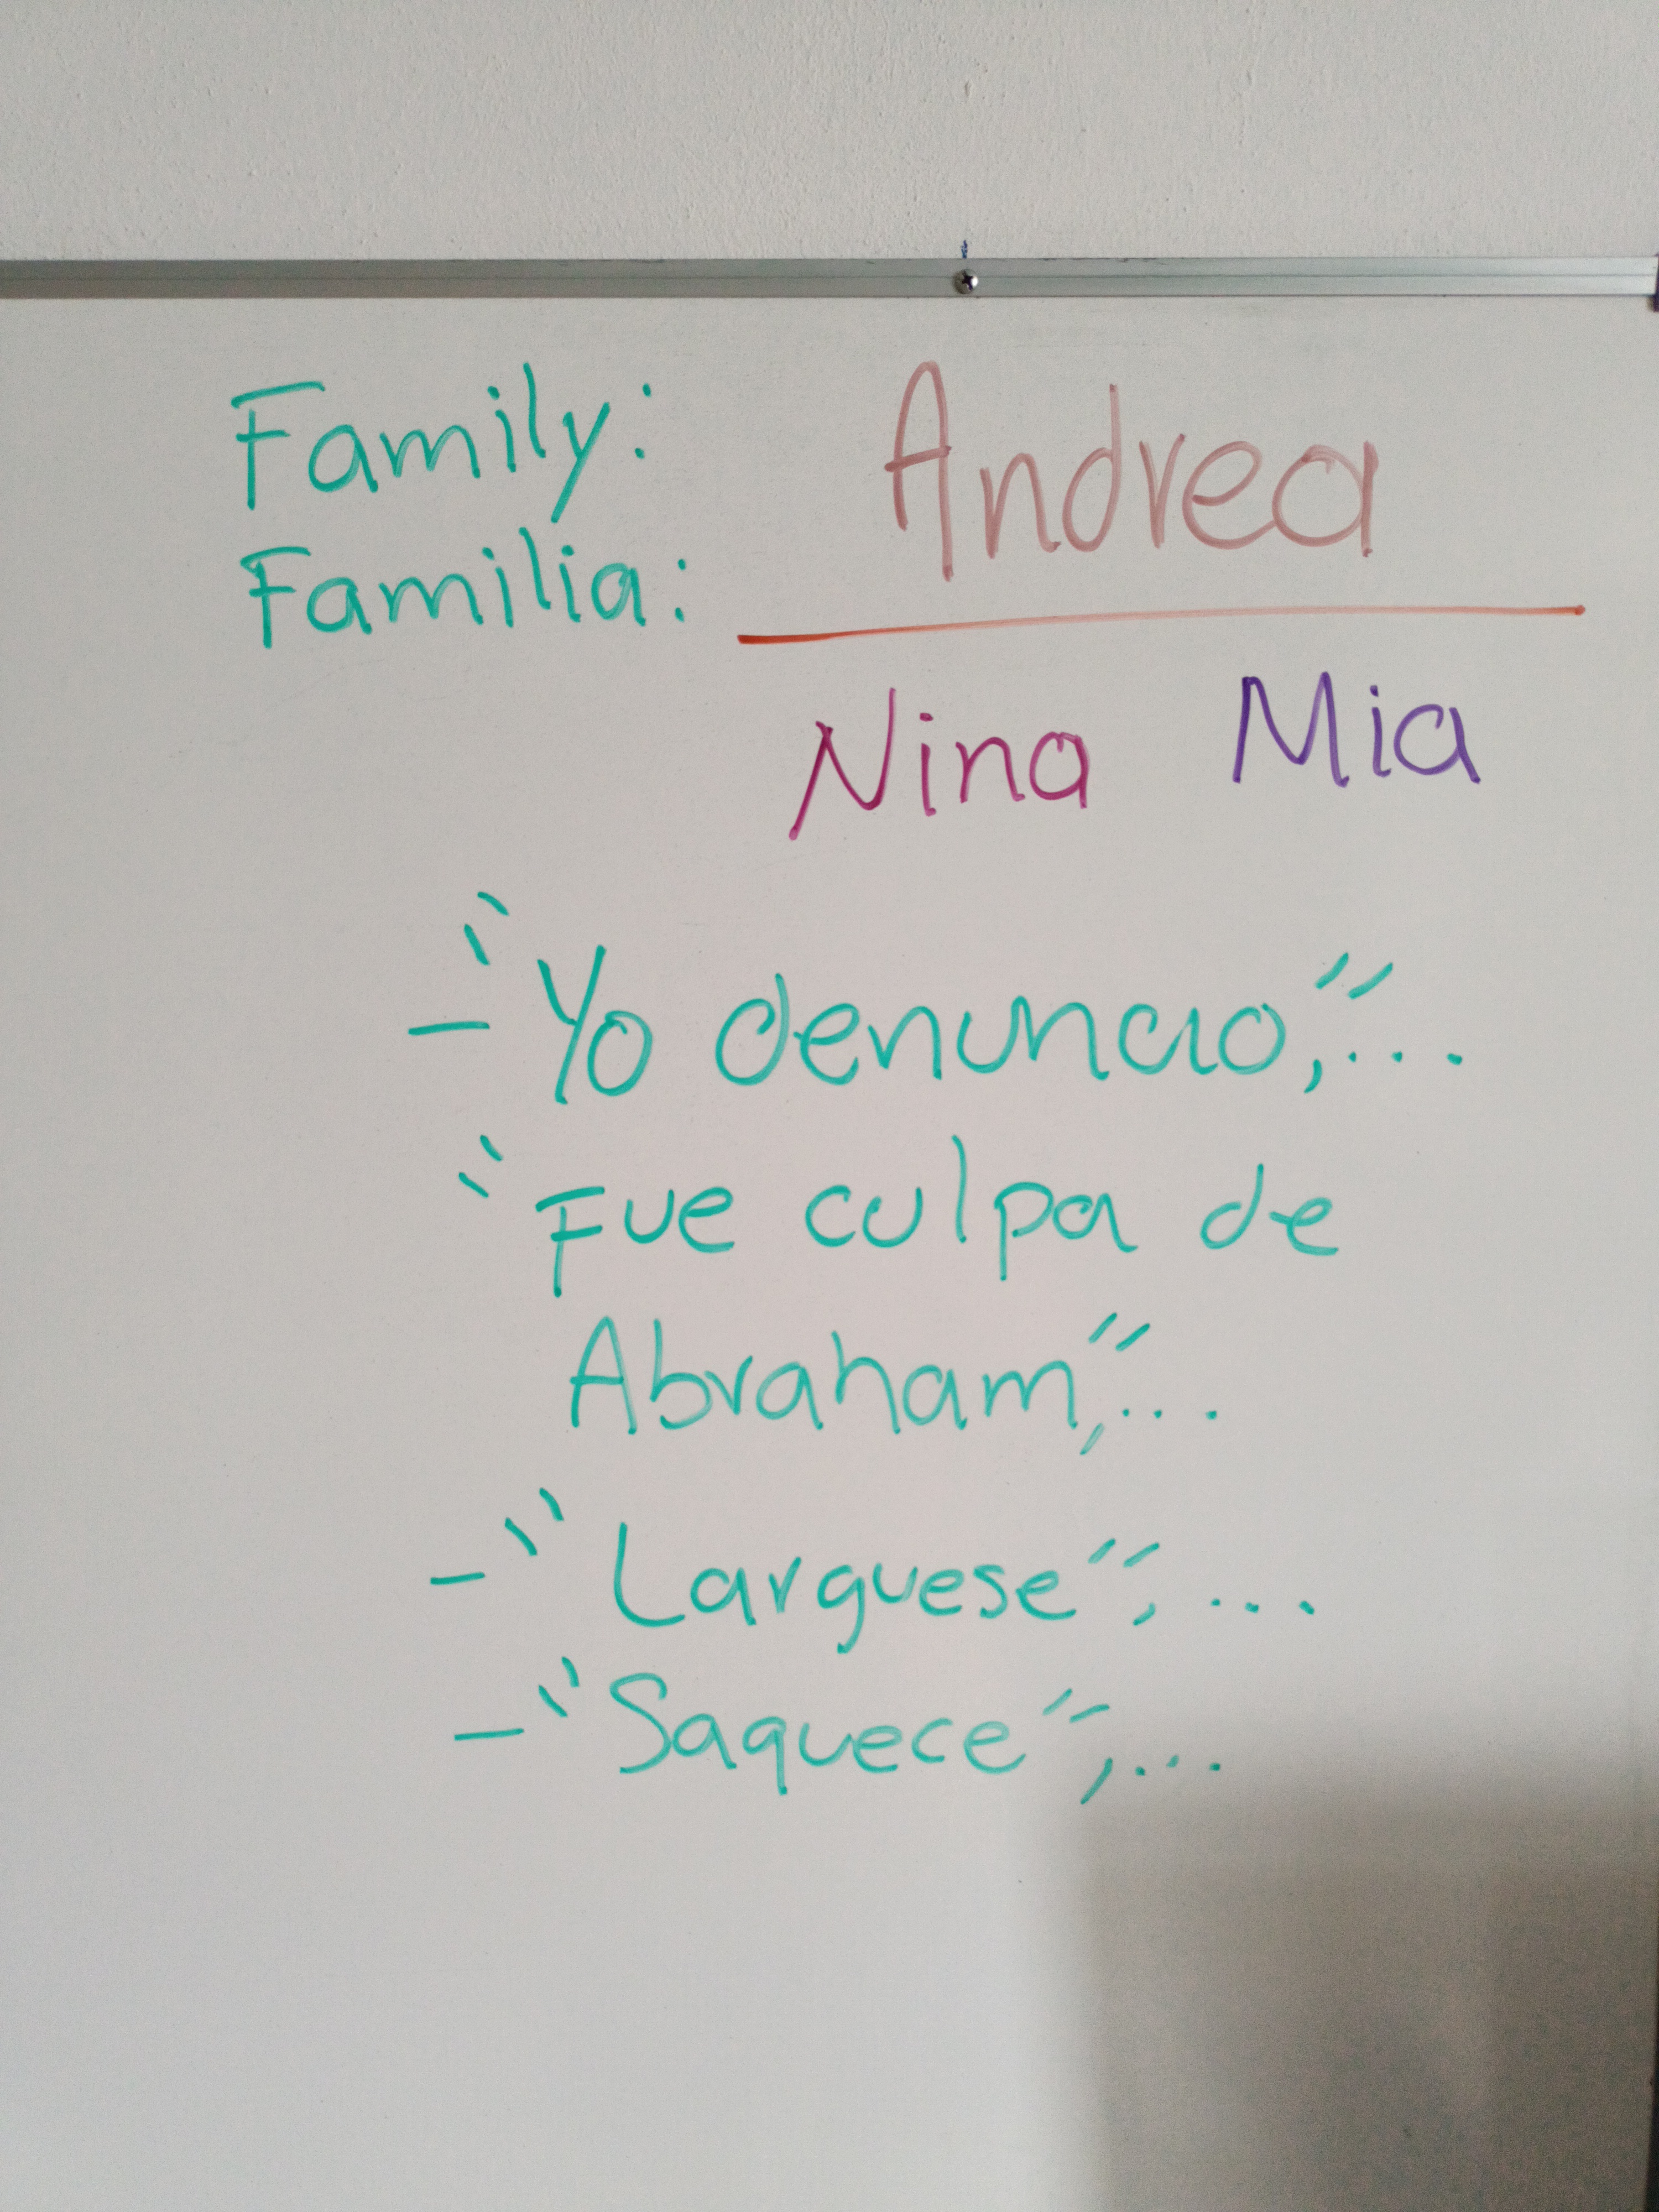 Family: Andrea
Familia:
Nina Mia
- "Yo denuncio,"...
"Fue culpa de
Abraham,"...
- "Larguese", ...
- "Saquece", ...